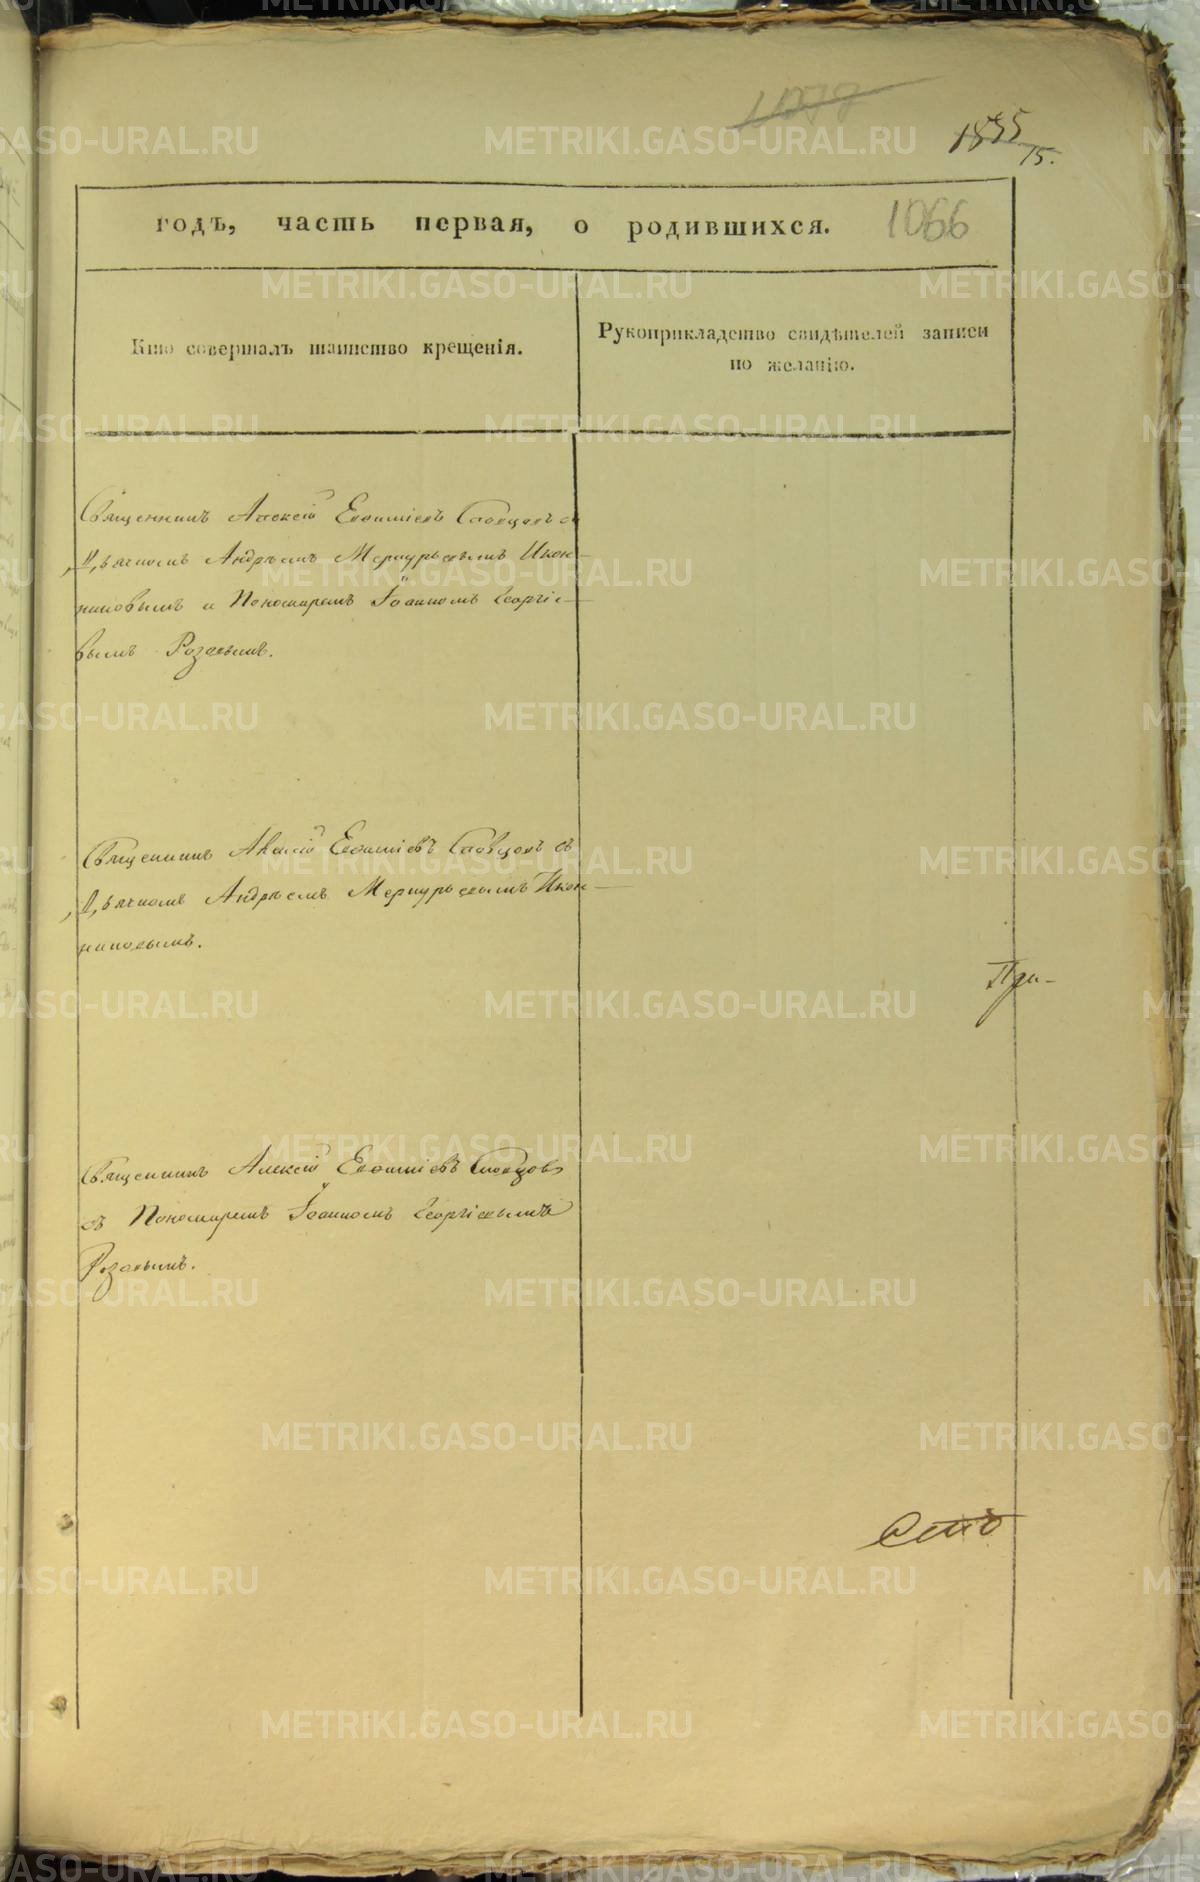 1835
15.
годъ, часть первая, о родившихся. 1066
Кто совершалъ таинство крещенія.
Рукоприкладство свидѣтелей записи
по желанію.
Священникъ Алексій Евѳиміевъ Словцовъ съ
Дьячкомъ Андрѣемъ Меркурьевымъ Икон-
никовымъ и Пономаремъ Іоанномъ Георгіе-
вымъ Розовымъ.
Священникъ Алексій Евѳиміевъ Словцовъ съ
Дьячкомъ Андрѣемъ Меркурьевымъ Икон-
никовымъ.
При-
Священникъ Алексій Евѳиміевъ Словцовъ
съ Пономаремъ Іоанномъ Георгіевымъ
Розовымъ.
METRIKI.GASO-URAL.RU